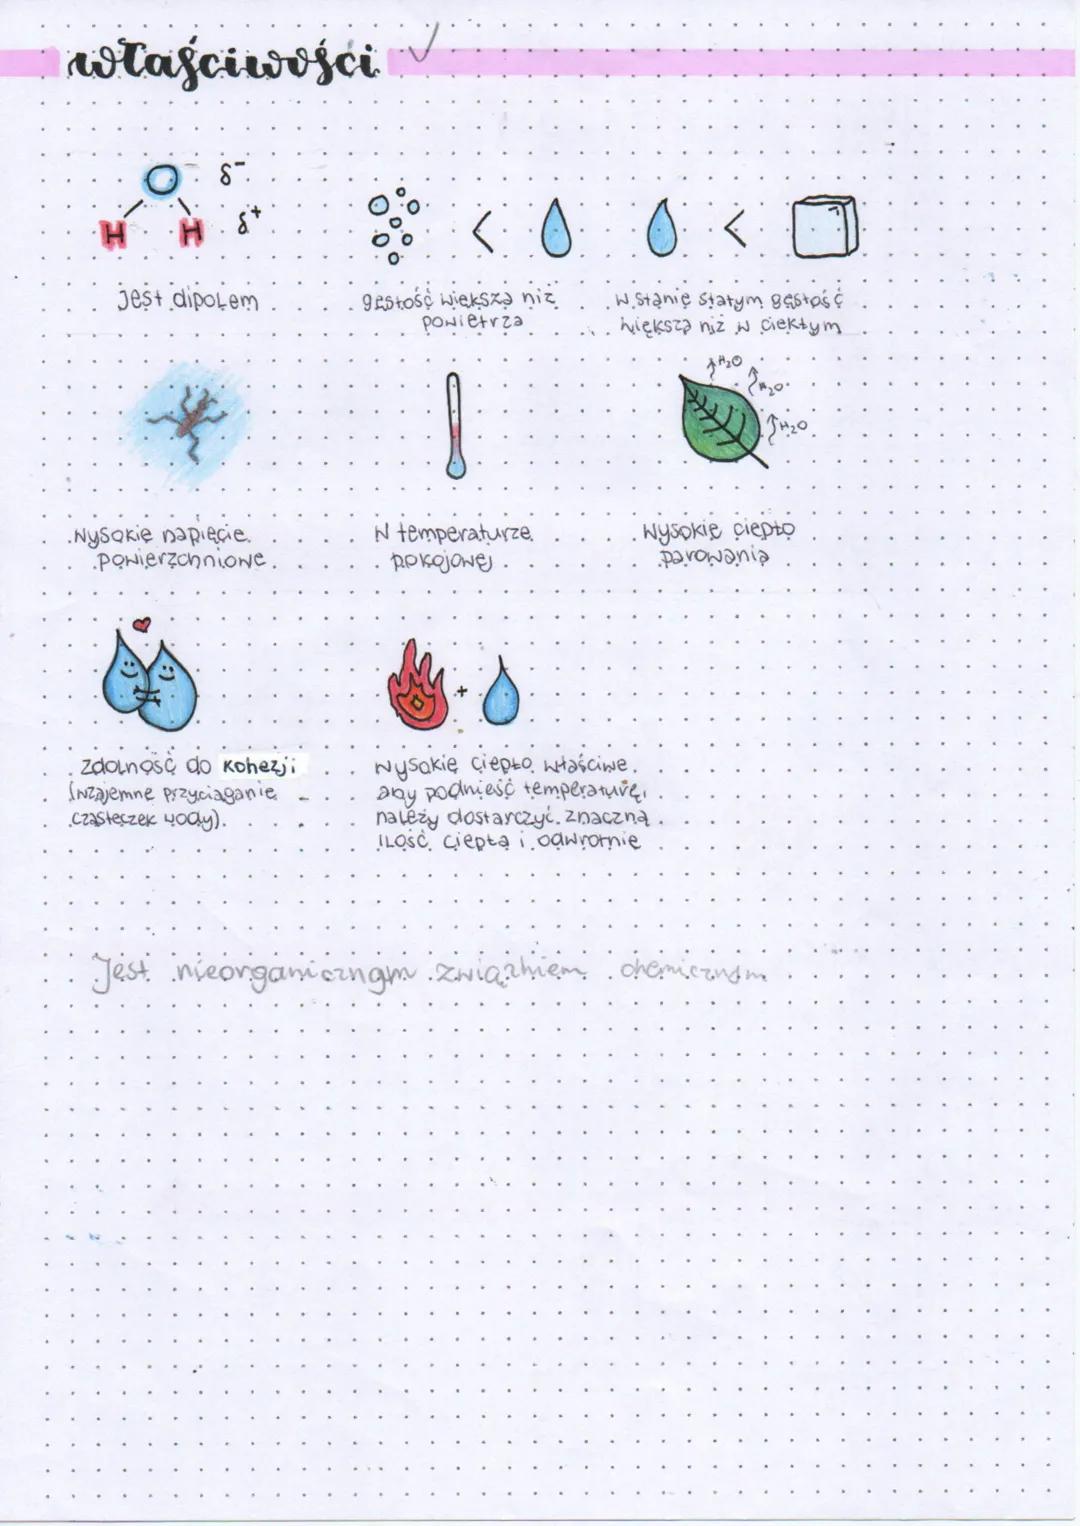 właściwości ✓
O δ-
H H δ+
< <
jest dipolem
gęstość większa niż
powietrza
w stanie stałym gęstość
większa niż w ciekłym
H₂O
H₂O
H₂O
wysokie napięcie
powierzchniowe
w temperaturze
pokojowej
wysokie ciepło
parowania
+
zdolność do kohezji
(wzajemne przyciąganie
cząsteczek wody)
wysokie ciepło właściwe
aby podnieść temperaturę,
należy dostarczyć znaczną
ilość ciepła i odwrotnie
Jest nieorganicznym związkiem chemicznym